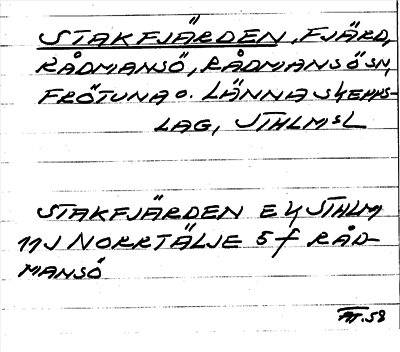 STAKFJÄRDEN, FJÄRD,
RÅDMANSÖ, RÅDMANSÖ SN,
FRÖTUNA O. LÄNNA SKEPPS-
LAG, STHLMS L
STAKFJÄRDEN EK STHLM
11J NORRTÄLJE 5 f RÅD-
MANSÖ